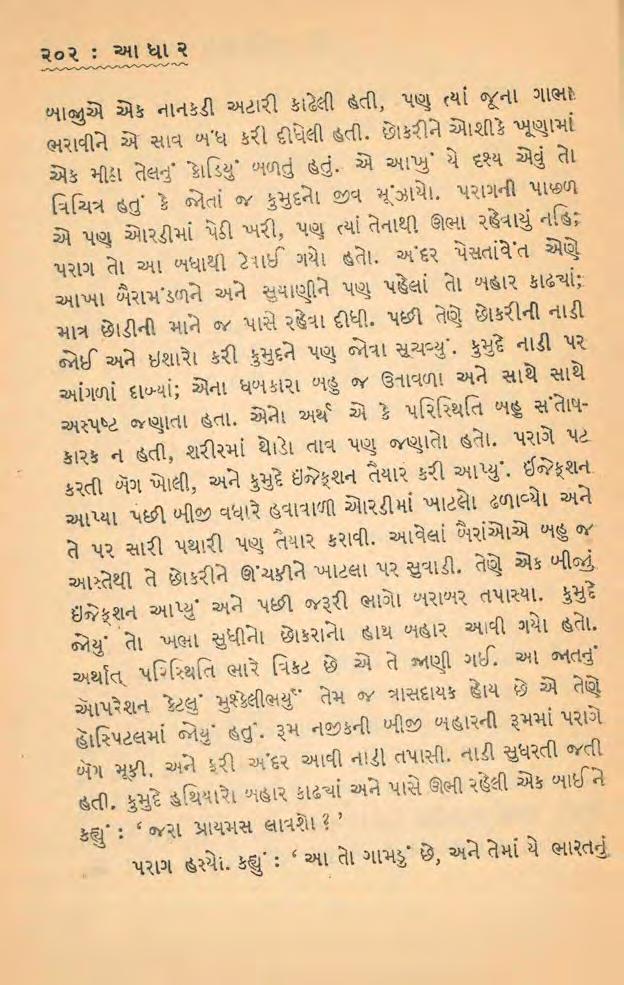 ૨૦૨ : આ ધા ૨
બાજુએ એક નાનકડી અટારી કાઢેલી હતી, પણ ત્યાં જૂના ગાભા
ભરાવીને એ સાવ બંધ કરી દીધેલી હતી. છોકરીને ઓશીકે ખૂણામાં
એક મીઠા તેલનું કોડિયું બળતું હતું. એ આખું યે દૃશ્ય એવું તો
વિચિત્ર હતું કે જોતાં જ કુમુદનો જીવ મૂંઝાયો. પરાગની પાછળ
એ પણ ઓરડીમાં પેઠી ખરી, પણ ત્યાં તેનાથી ઊભા રહેવાયું નહિ;
પરાગ તો આ બધાથી ટેવાઈ ગયો હતો. અંદર પેસતાંવેંત એણે
આખા બૈરામંડળને અને સુયાણીને પણ પહેલાં તો બહાર કાઢ્યાં;
માત્ર છોડીની માને જ પાસે રહેવા દીધી. પછી તેણે છોકરીની નાડી
જોઈ અને ઇશારો કરી કુમુદને પણ જોવા સૂચવ્યું. કુમુદે નાડી પર
આંગળાં દાબ્યાં; એના ધબકારા બહુ જ ઉતાવળા અને સાથે સાથે
અસ્પષ્ટ જણાતા હતા. એનો અર્થ એ કે પરિસ્થિતિ બહુ સંતોષ-
કારક ન હતી, શરીરમાં થોડો તાવ પણ જણાતો હતો. પરાગે પટ
કરતી બૅગ ખોલી, અને કુમુદે ઇંજેક્શન તૈયાર કરી આપ્યું. ઈંજેક્શન
આપ્યા પછી બીજી વધારે હવાવાળી ઓરડીમાં ખાટલો ઢળાવ્યો અને
તે પર સારી પથારી પણ તૈયાર કરાવી. આવેલાં બૈરાંઓએ બહુ જ
આસ્તેથી તે છોકરીને ઊંચકીને ખાટલા પર સુવાડી. તેણે એક બીજું
ઇંજેક્શન આપ્યું અને પછી જરૂરી ભાગો બરાબર તપાસ્યા. કુમુદે
જોયું તો ખભા સુધીનો છોકરાનો હાથ બહાર આવી ગયો હતો.
અર્થાત્ પરિસ્થિતિ ભારે વિકટ છે એ તે જાણી ગઈ. આ જાતનું
ઑપરેશન કેટલું મુશ્કેલીભર્યું તેમ જ ત્રાસદાયક હોય છે એ તેણે
હૉસ્પિટલમાં જોયું હતું. રૂમ નજીકની બીજી બહારની રૂમમાં પરાગે
બૅગ મૂકી. અને ફરી અંદર આવી નાડી તપાસી. નાડી સુધરતી જતી
હતી. કુમુદે હથિયારો બહાર કાઢ્યાં અને પાસે ઊભી રહેલી એક બાઈ ને
કહ્યું : ‘જરા પ્રાયમસ લાવશો ?’
પરાગ હસ્યો. કહ્યું : ‘ આ તો ગામડું છે, અને તેમાં યે ભારતનું